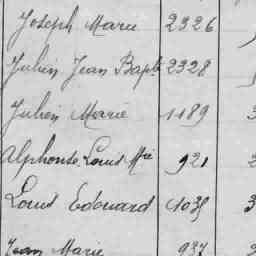 Joseph Marie 2326
Julien Jean Bapte 2328
Julien Marie 1189
Alphonse Louis Mie 921
Louis Edouard 1039
Jean Marie 937